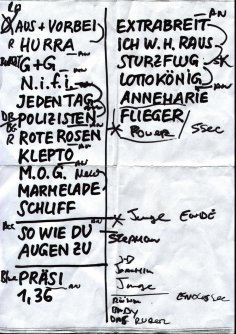 AUS + VORBEI
HURRA
G + G
N.i.f.i
JEDEN TAG
POLIZISTEN
ROTE ROSEN
KLEPTO
M.O.G.
MARMELADE
SCHLIFF
SO WIE DU
AUGEN ZU
PRÄSI
1,36
EXTRABREIT
ICH W.H. RAUS
STURZFLUG
LOTTOKÖNIG
ANNEHARIE
FLIEGER
POWER / 5 SEC
Junge ENDE
STEPHAN
JOACHIM
Junge
BABY